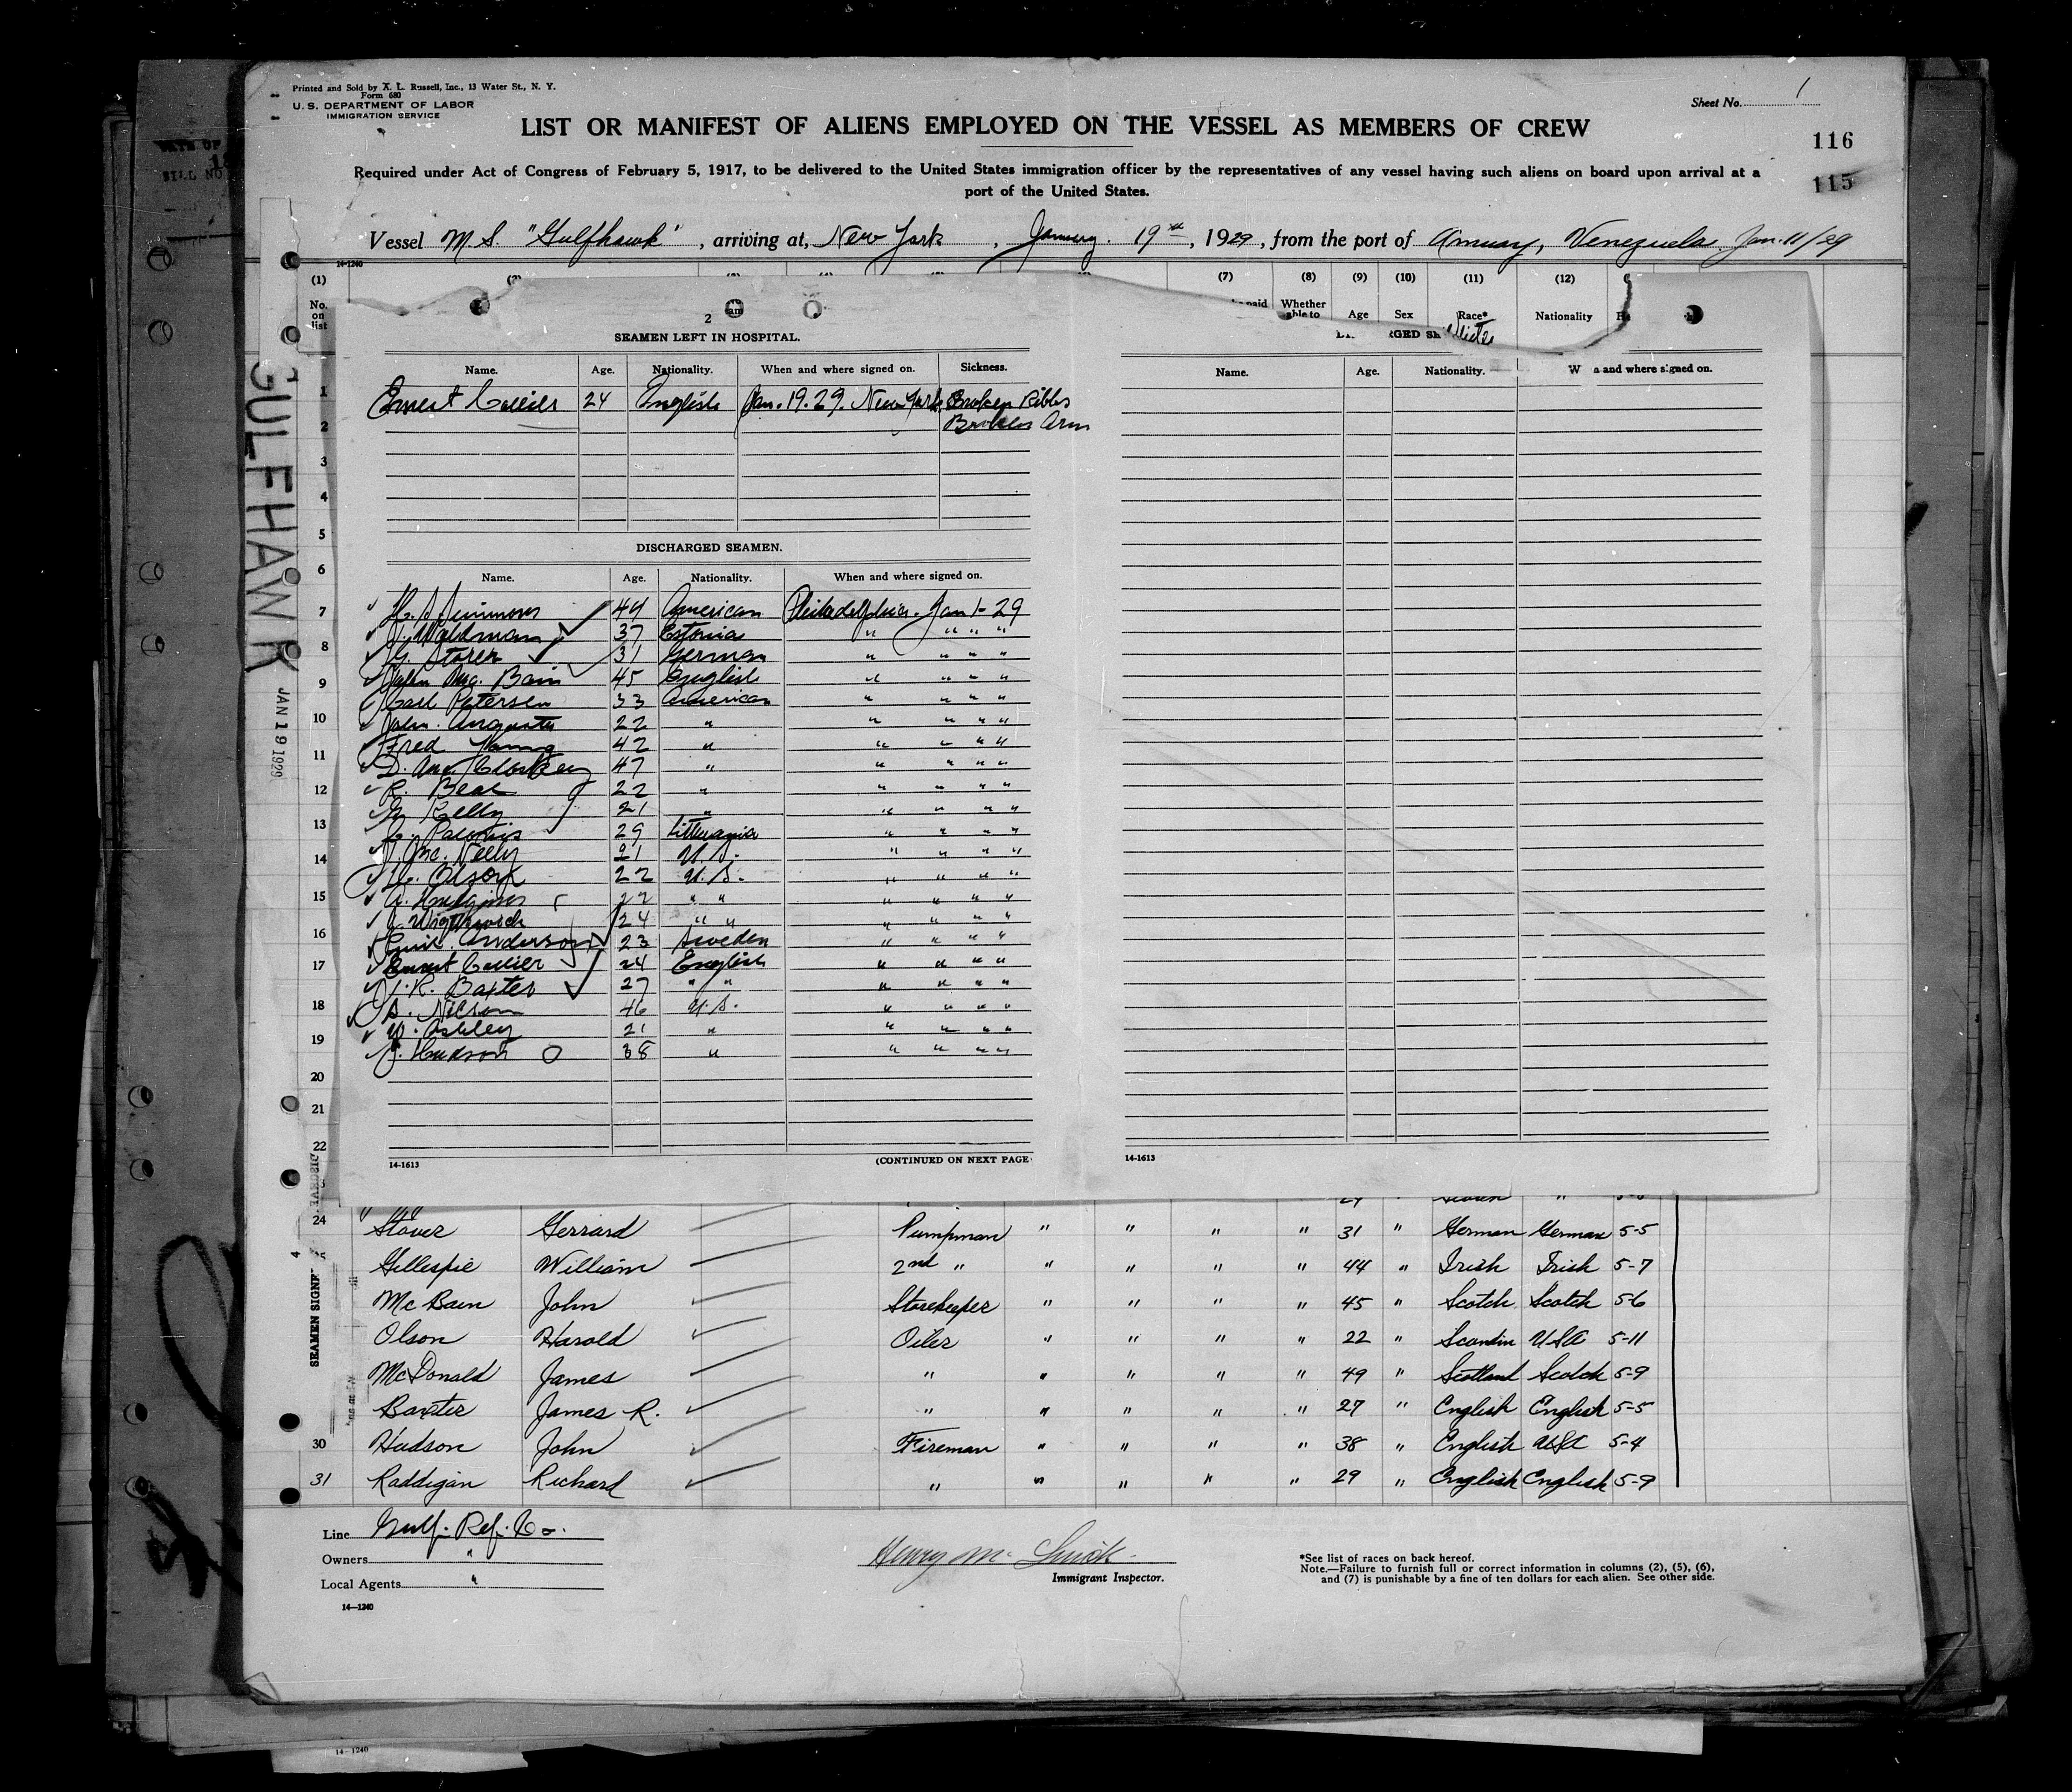 Printed and Sold by X. L. Russell, Inc., 13 Water St., N. Y.
Form 680
U. S. DEPARTMENT OF LABOR
IMMIGRATION SERVICE
Sheet No. 1
LIST OR MANIFEST OF ALIENS EMPLOYED ON THE VESSEL AS MEMBERS OF CREW
116
Required under Act of Congress of February 5, 1917, to be delivered to the United States immigration officer by the representatives of any vessel having such aliens on board upon arrival at a
port of the United States.
115
Vessel M. S. "Gulfhawk", arriving at, New York, January 19th, 1929, from the port of Amuay, Venezuela Jan. 11/29
14-1240
(1) (7) (8) (9) (10) (11) (12)
No. on list Whether able to Age Sex Race* Nationality
2
SEAMEN LEFT IN HOSPITAL.
Name. Age. Nationality. When and where signed on. Sickness.
Name. Age. Nationality. and where signed on.
Ernest Collier 24 English Jan. 19. 29. New York Broken Ribbs
Broken Arm
DISCHARGED SEAMEN.
Name. Age. Nationality. When and where signed on.
Simmons 44 American Philadelphia. Jan 1-29
Waldman 37 Estonia " " " "
G. Storer 31 German " " " "
John Mc. Bain 45 English " " " "
Carl Petersen 33 American " " " "
John. Augusta 22 " " " " "
Fred Young 42 " " " " "
D. Mc. Closkey 47 " " " " "
R. Bear 22 " " " " "
Kelly 21 " " " " "
29 Lithuania " " " "
Mc. Nelly 21 U. S. " " " "
Olson 22 U. S. " " " "
A. Hudgins 22 " " " " " "
24 " " " " " "
Emil. Anderson 23 Sweden " " " "
Ernest Collier 24 English " " " "
J. R. Baxter 27 " " " " " "
Nilson 46 U. S. " " " "
W. Ashley 21 " " " " "
J. Hudson 38 " " " " "
14-1613 (CONTINUED ON NEXT PAGE
14-1613
1
2
3
4
5
6
7
8
9
10
11
12
13
14
15
16
17
18
19
20
21
22
GULFHAWK
JAN 19 1929
24 Stover Gerrard Pumpman " " " " 31 " German German 5-5
Gillespie William 2nd " " " " " 44 " Irish Irish 5-7
McBain John Storekeeper " " " " 45 " Scotch Scotch 5-6
Olson Harold Oiler " " " " 22 " Scandin USA 5-11
McDonald James " " " " " 49 " Scotland Scotch 5-9
Baxter James R. " " " " " 27 " English English 5-5
30 Hudson John Fireman " " " " 38 " English USA 5-4
31 Raddigan Richard " " " " " 29 " English English 5-9
SEAMEN SIGNE
Line Gulf. Ref. Co.
Owners "
Local Agents "
14-1240
Henry Mc
Immigrant Inspector.
*See list of races on back hereof.
Note.—Failure to furnish full or correct information in columns (2), (5), (6),
and (7) is punishable by a fine of ten dollars for each alien. See other side.
14-1240